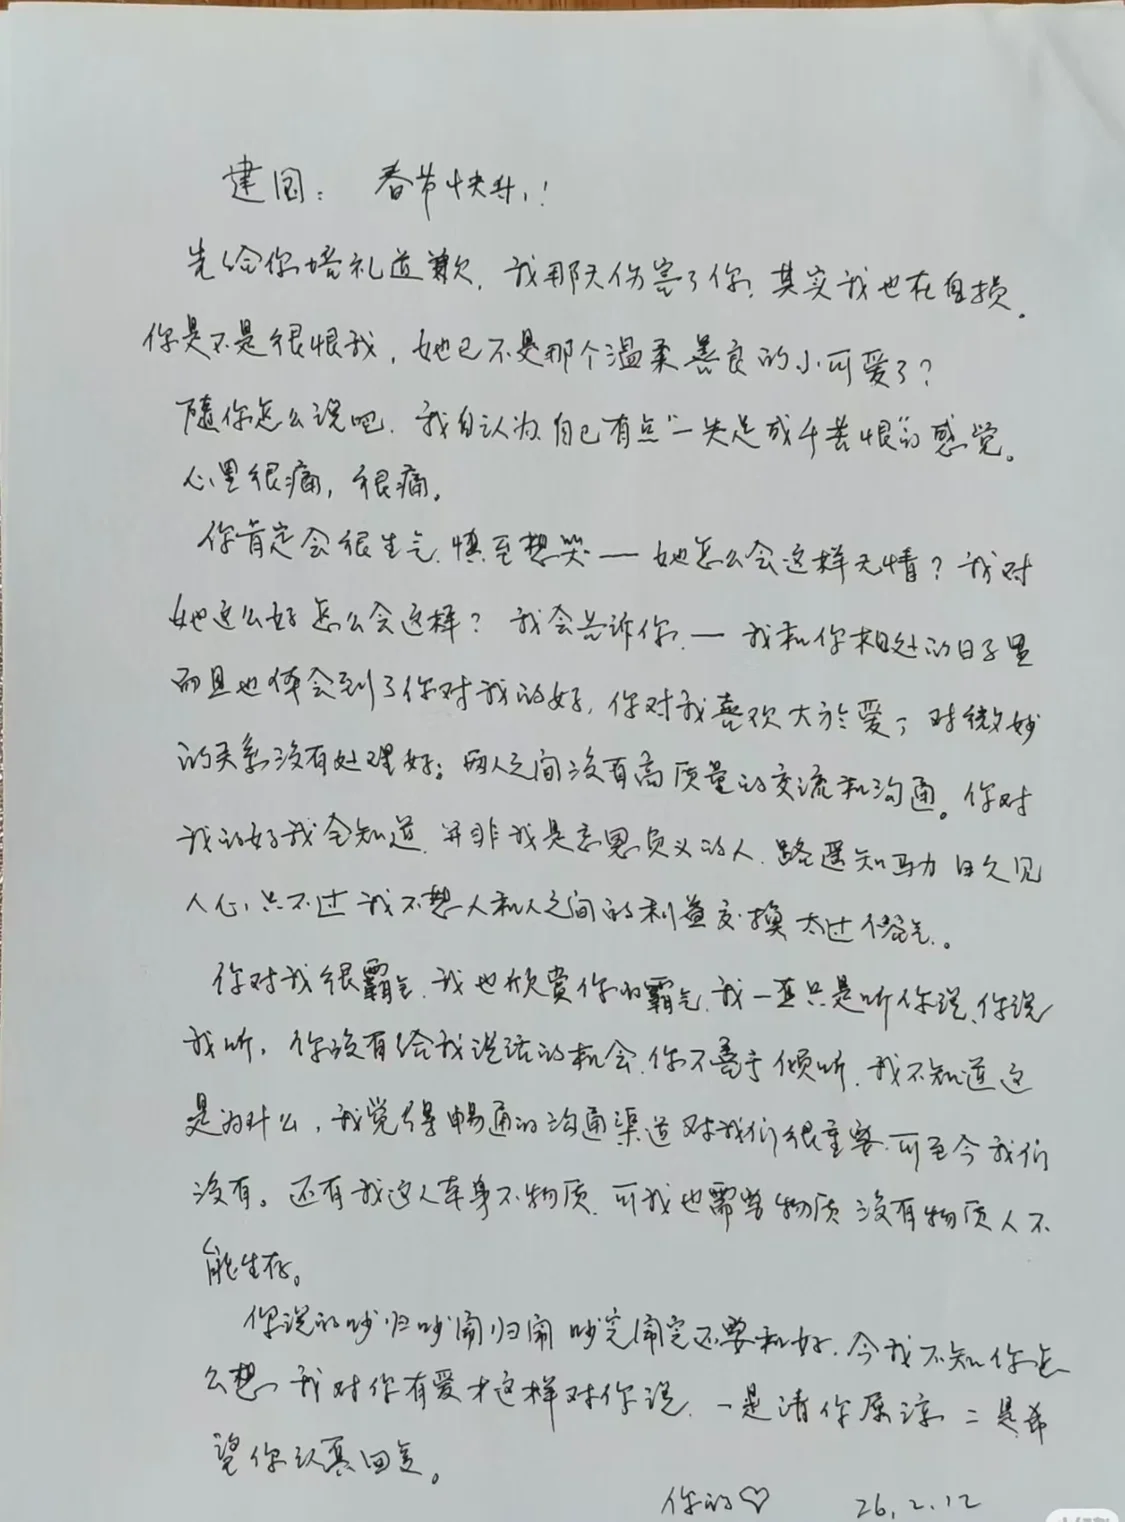 建国： 春节快乐！
先给你赔礼道歉，我那天伤害了你，其实我也在自损。
你是不是很恨我，她已不是那个温柔善良的小可爱了？
随你怎么说吧，我自认为自己有点"一失足成千苦恨"的感觉。
心里很痛，很痛。
你肯定会很生气，慎至想哭——她怎么会这样无情？我对
她这么好怎么会这样？我会告诉你，——我和你相处的日子里
而且也体会到了你对我的好，你对我喜欢大于爱，对微妙
的关系没有处理好；两人之间没有高质量的交流和沟通。你对
我的好我全知道，并非我是忘恩负义的人，路遥知马力日久见
人心，只不过我不想人和人之间的利益交换太过俗气。
你对我很霸气，我也欣赏你的霸气，我一直只是听你说，你说
我听，你没有给我说话的机会，你不善于倾听，我不知道这
是为什么，我觉得畅通的沟通渠道对我们很重要，可至今我们
没有。还有我这人本身不物质，可我也需要物质没有物质人不
能生存。
你说的吵归吵闹归闹吵完闹完还要和好，今我不知你怎
么想，我对你有爱才这样对你说，一是请你原谅二是希
望你认真回复。
你的♡ 26.2.12